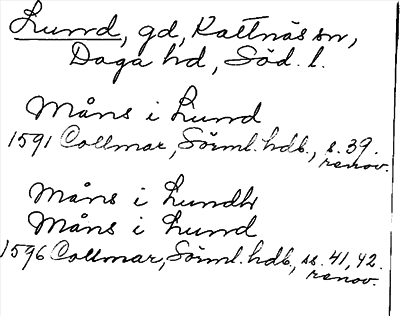 Lund, gd, Kattnäs sn,
Daga hd, Söd. l.
Måns i Lund
1591 Collmar, Sörml. hdb., s. 39.
renov.
Måns i Lundh
Måns i Lund
1596 Collmar, Sörml. hdb., ss. 41, 42.
renov.